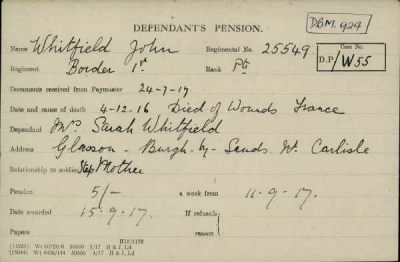 DEFENDANT'S PENSION.
DBM. 924
Name Whitfield John Regimental No. 25549 Case No.
Regiment Border 1st Rank Pte D.P./W55
Documents received from Paymaster 24-7-17
Date and cause of death 4-12-16 Died of Wounds France
Dependant Mrs Sarah Whitfield
Address Glasson - Burgh-by-Sands. Nr Carlisle
Relationship to soldier Step Mother
Pension 5/- a week from 11-9-17.
Date awarded 15.9.17. If refused,
Papers reason
H16/1189